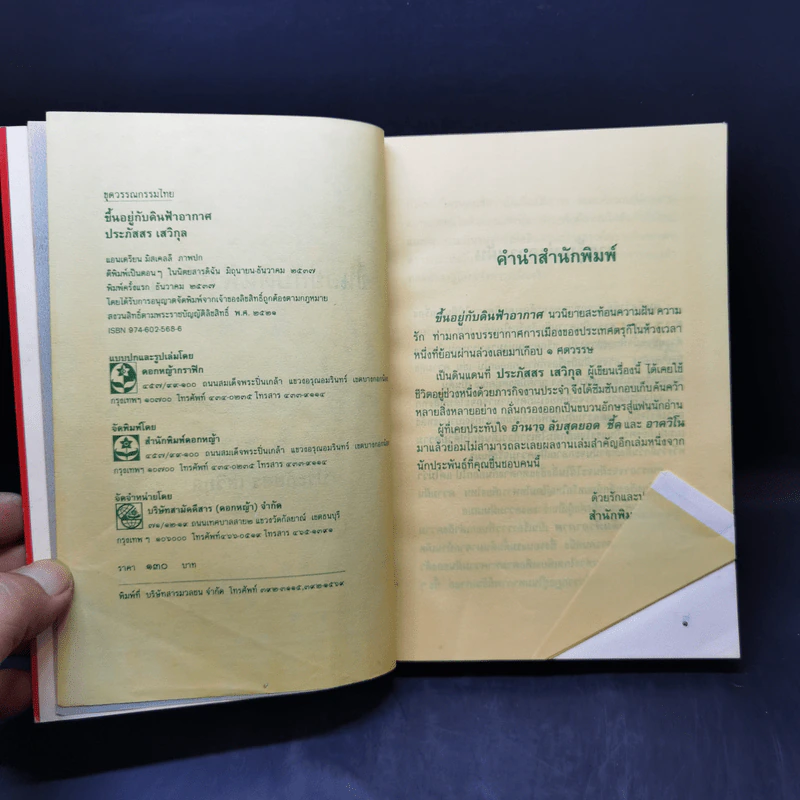 ชุดวรรณกรรมไทย
ขึ้นอยู่กับดินฟ้าอากาศ
ประภัสสร เสวิกุล
แอนเดรียน มิสเคลลี ภาพปก
ตีพิมพ์เป็นตอนๆ ในนิตยสารดิฉัน มิถุนายน-ธันวาคม ๒๕๓๗
พิมพ์ครั้งแรก ธันวาคม ๒๕๓๗
โดยได้รับการอนุญาตจัดพิมพ์จากเจ้าของลิขสิทธิ์ถูกต้องตามกฎหมาย
สงวนลิขสิทธิ์ตามพระราชบัญญัติลิขสิทธิ์ พ.ศ. ๒๕๒๑
ISBN 974-602-568-6
แบบปกและรูปเล่มโดย
ดอกหญ้ากราฟิก
๔๕๗/๙๙-๑๐๐ ถนนสมเด็จพระปิ่นเกล้า แขวงอรุณอมรินทร์ เขตบางกอกน้อย
กรุงเทพฯ ๑๐๗๐๐ โทรศัพท์ ๔๓๔-๐๒๓๕ โทรสาร ๔๓๓-๙๑๑๔
จัดพิมพ์โดย
สำนักพิมพ์ดอกหญ้า
๔๕๗/๙๙-๑๐๐ ถนนสมเด็จพระปิ่นเกล้า แขวงอรุณอมรินทร์ เขตบางกอกน้อย
กรุงเทพฯ ๑๐๗๐๐ โทรศัพท์ ๔๓๔-๐๒๓๕ โทรสาร ๔๓๓-๙๑๑๔
จัดจำหน่ายโดย
บริษัทสามัคคีสาร (ดอกหญ้า) จำกัด
๗๑/๑๒-๑๙ ถนนเทศบาลสาย๒ แขวงวัดกัลยาณ์ เขตธนบุรี
กรุงเทพ ฯ ๑๐๖๐๐๐ โทรศัพท์๔๖๖-๐๕๑๙ โทรสาร ๔๖๕-๑๓๙๑
ราคา ๑๓๐ บาท
พิมพ์ที่ บริษัทสารมวลชน จำกัด โทรศัพท์ ๓๙๒-๓๑๑๕,๓๙๒-๑๕๖๙
คำนำสำนักพิมพ์
ขึ้นอยู่กับดินฟ้าอากาศ นวนิยายสะท้อนความฝัน ความ
รัก ท่ามกลางบรรยากาศการเมืองของประเทศตุรกีในห้วงเวลา
หนึ่งที่ย้อนผ่านล่วงเลยมาเกือบ ๑ ศตวรรษ
เป็นดินแดนที่ ประภัสสร เสวิกุล ผู้เขียนเรื่องนี้ ได้เคยใช้
ชีวิตอยู่ช่วงหนึ่งด้วยภารกิจงานประจำ จึงได้ซึมซับกอบเก็บค้นคว้า
หลายสิ่งหลายอย่าง กลั่นกรองออกเป็นขบวนอักษรสู่แฟนนักอ่าน
ผู้ที่เคยประทับใจ อำนาจ ลับสุดยอด ชี้ค และ อาควิโน
มาแล้วย่อมไม่สามารถละเลยผลงานเล่มสำคัญอีกเล่มหนึ่งจาก
นักประพันธ์ที่คุณชื่นชอบคนนี้
ด้วยรักและ
สำนักพิม